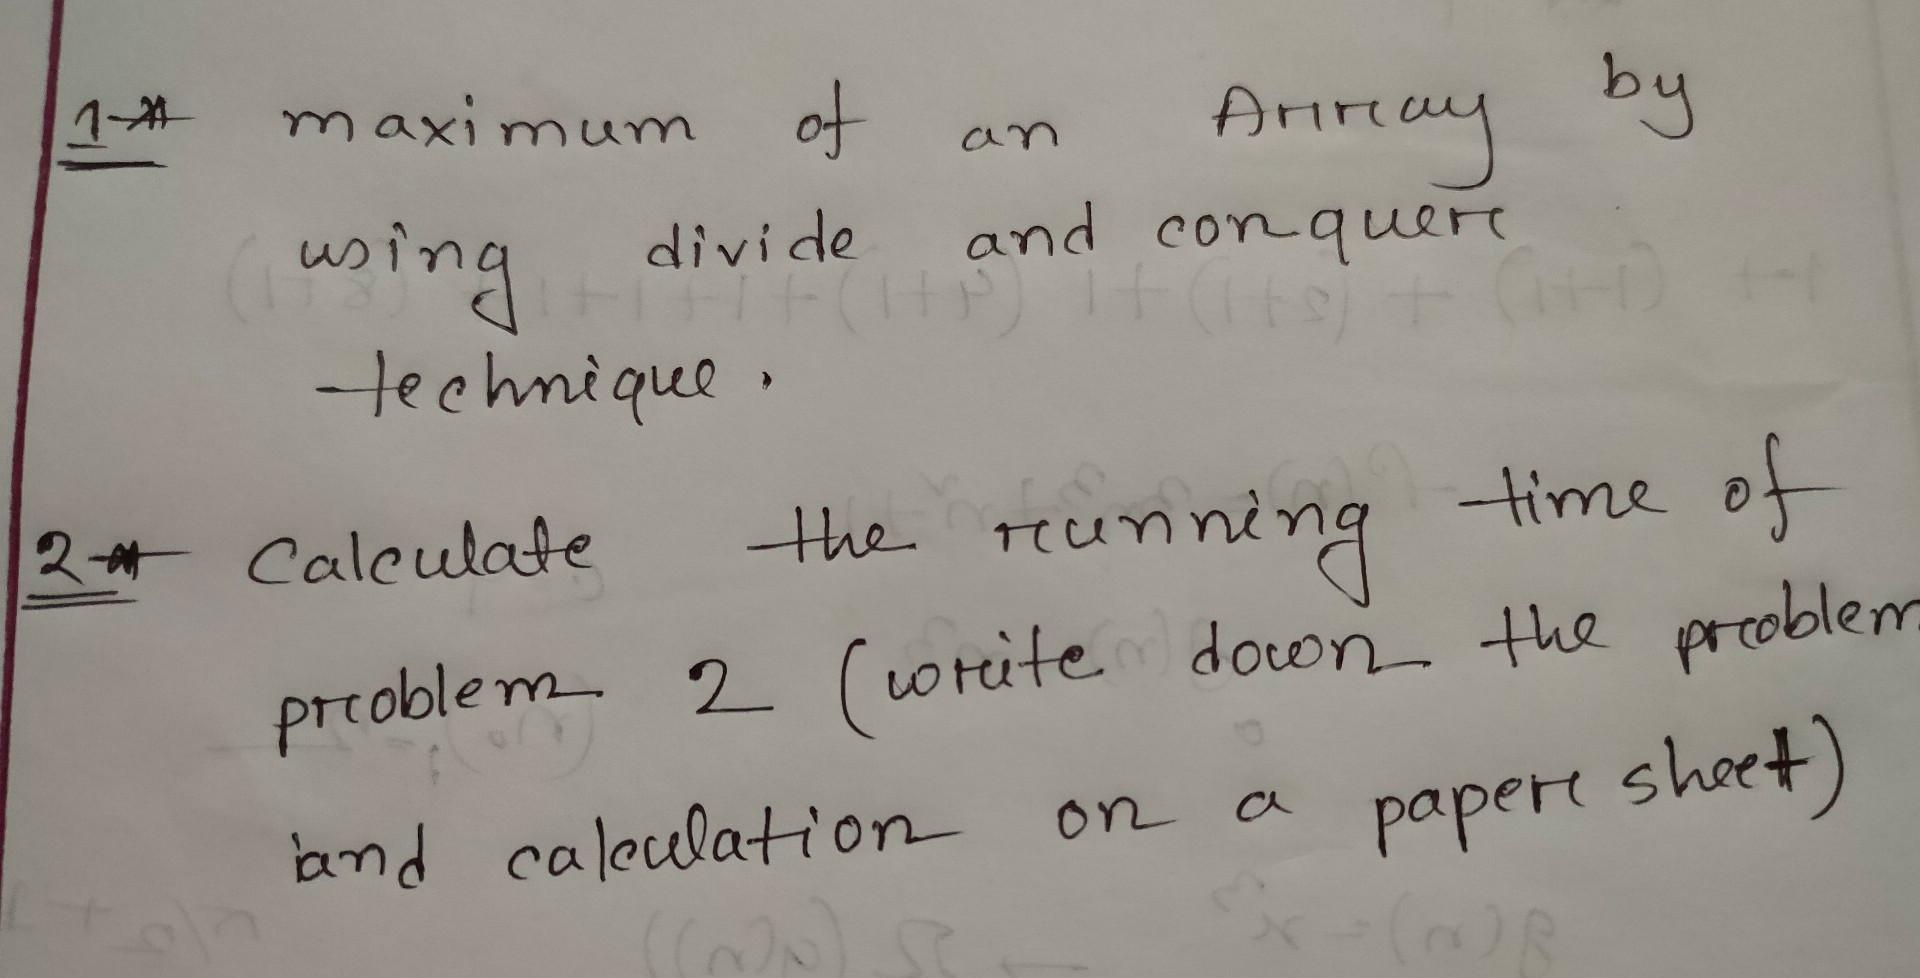 1→ maximum of an Array by
using divide and conquer
technique.
2→ Calculate the running time of
problem 2 (write down the problem
and calculation on a paper sheet)